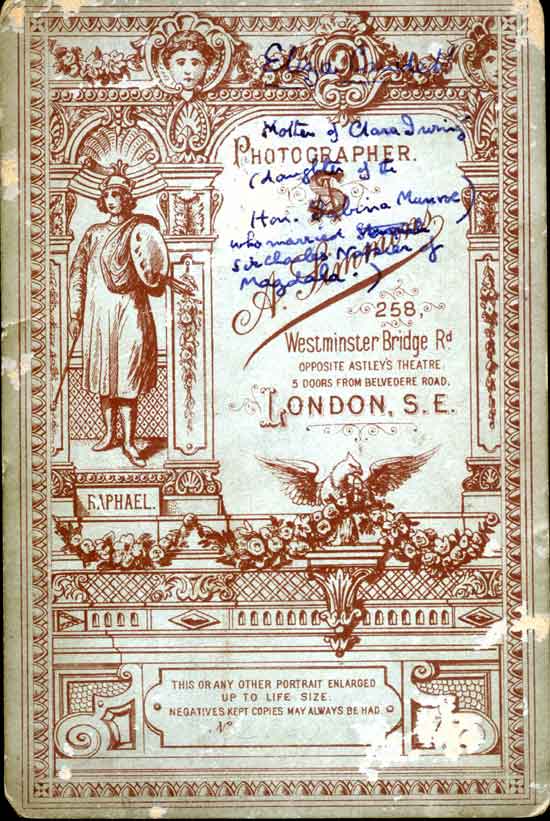 Eliza
Mother of Clara Irwing
PHOTOGRAPHER.
(daughter of the
Hon. Sabina Munroe)
who married
Sir Charles Napier of
Magdala.)
A.
258,
Westminster Bridge Rd
OPPOSITE ASTLEY'S THEATRE.
5 DOORS FROM BELVEDERE ROAD.
LONDON, S.E.
RAPHAEL.
THIS OR ANY OTHER PORTRAIT ENLARGED
UP TO LIFE SIZE.
NEGATIVES KEPT COPIES MAY ALWAYS BE HAD.
No